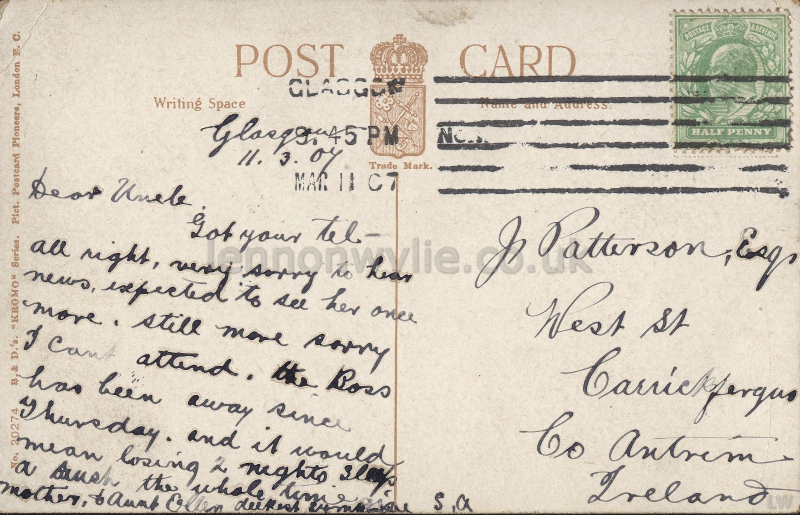 POST CARD
Writing Space
Name and Address.
Trade Mark.
POSTAGE & REVENUE
HALF PENNY
GLASGOW
3.45 PM
MAR 11 07
Glasgow
11.3.07
Dear Uncle
Got your tel-
all right, very sorry to hear
news, expected to see her once
more. still more sorry
I cant attend. the Boss
has been away since
Thursday. and it would
mean losing 2 nights sleep
a rush the whole time
mother, & Aunt Ellen deepest
S,A
J Patterson, Esqr
West St
Carrickfergus
Co Antrim
Ireland
No. 20274 B. & D.'s. "KROMO" Series. Pict. Postcard Pioneers, London E. C.
lennonwylie.co.uk
LW